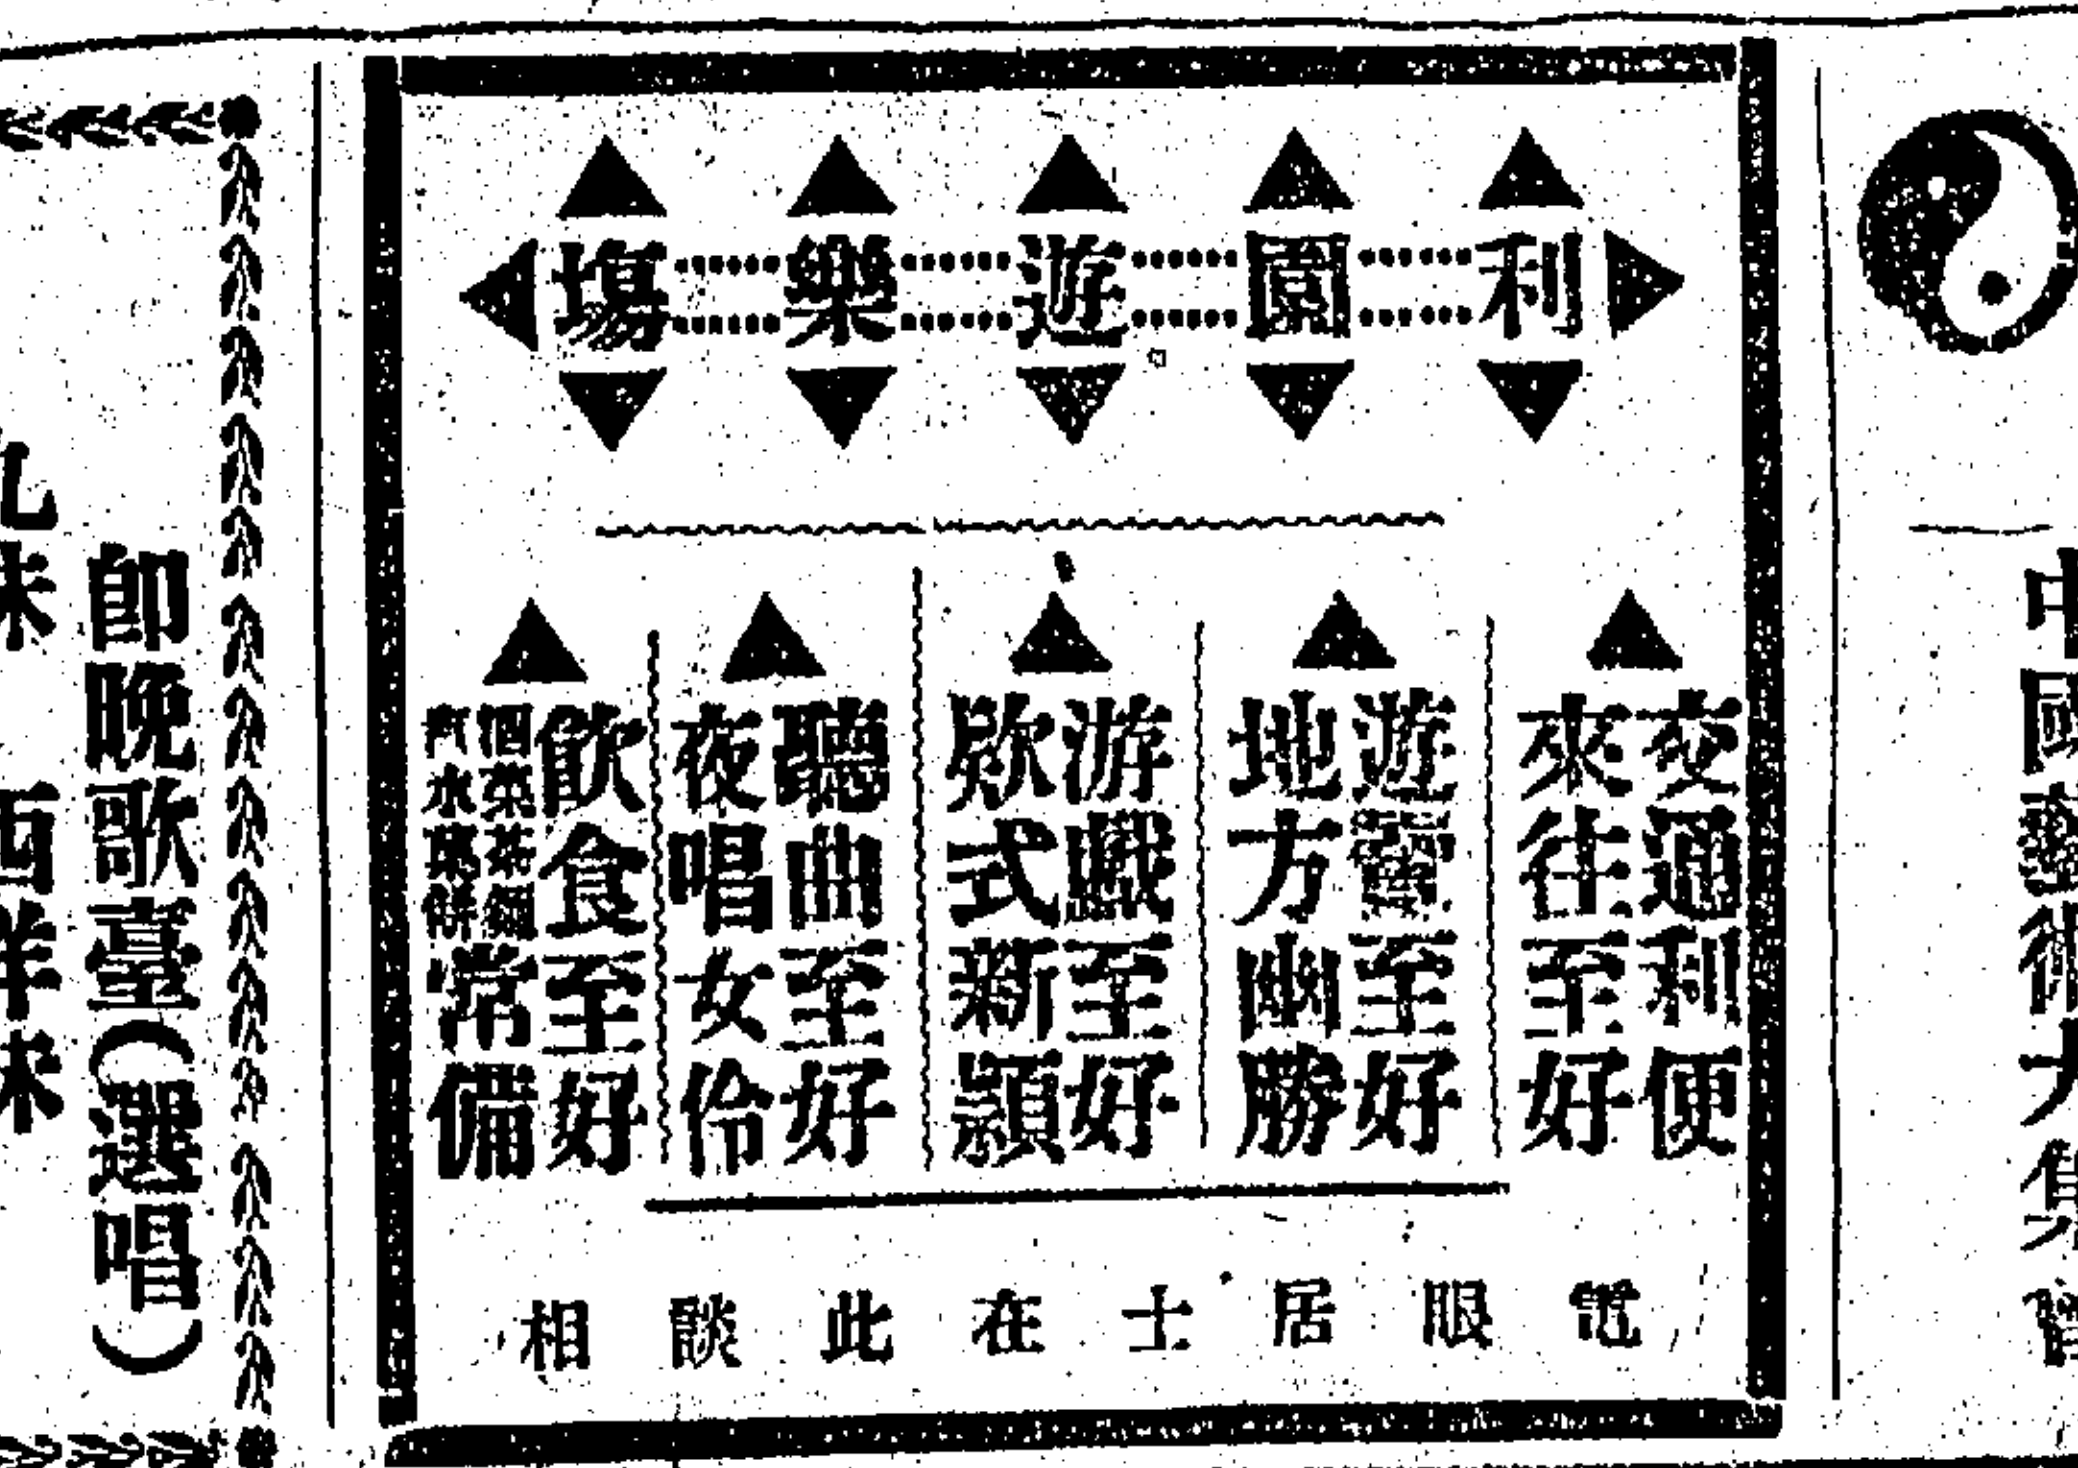 中國藝術大
利園遊樂塲
交通利便
來往至好
遊覽至好
地方幽勝
游戲至好
欵式新穎
聽曲至好
夜唱女伶
飲食至好
酒菜茶麵
汽水菓餅
常備
電眼居士在此談相
卽晚歌臺(選唱)